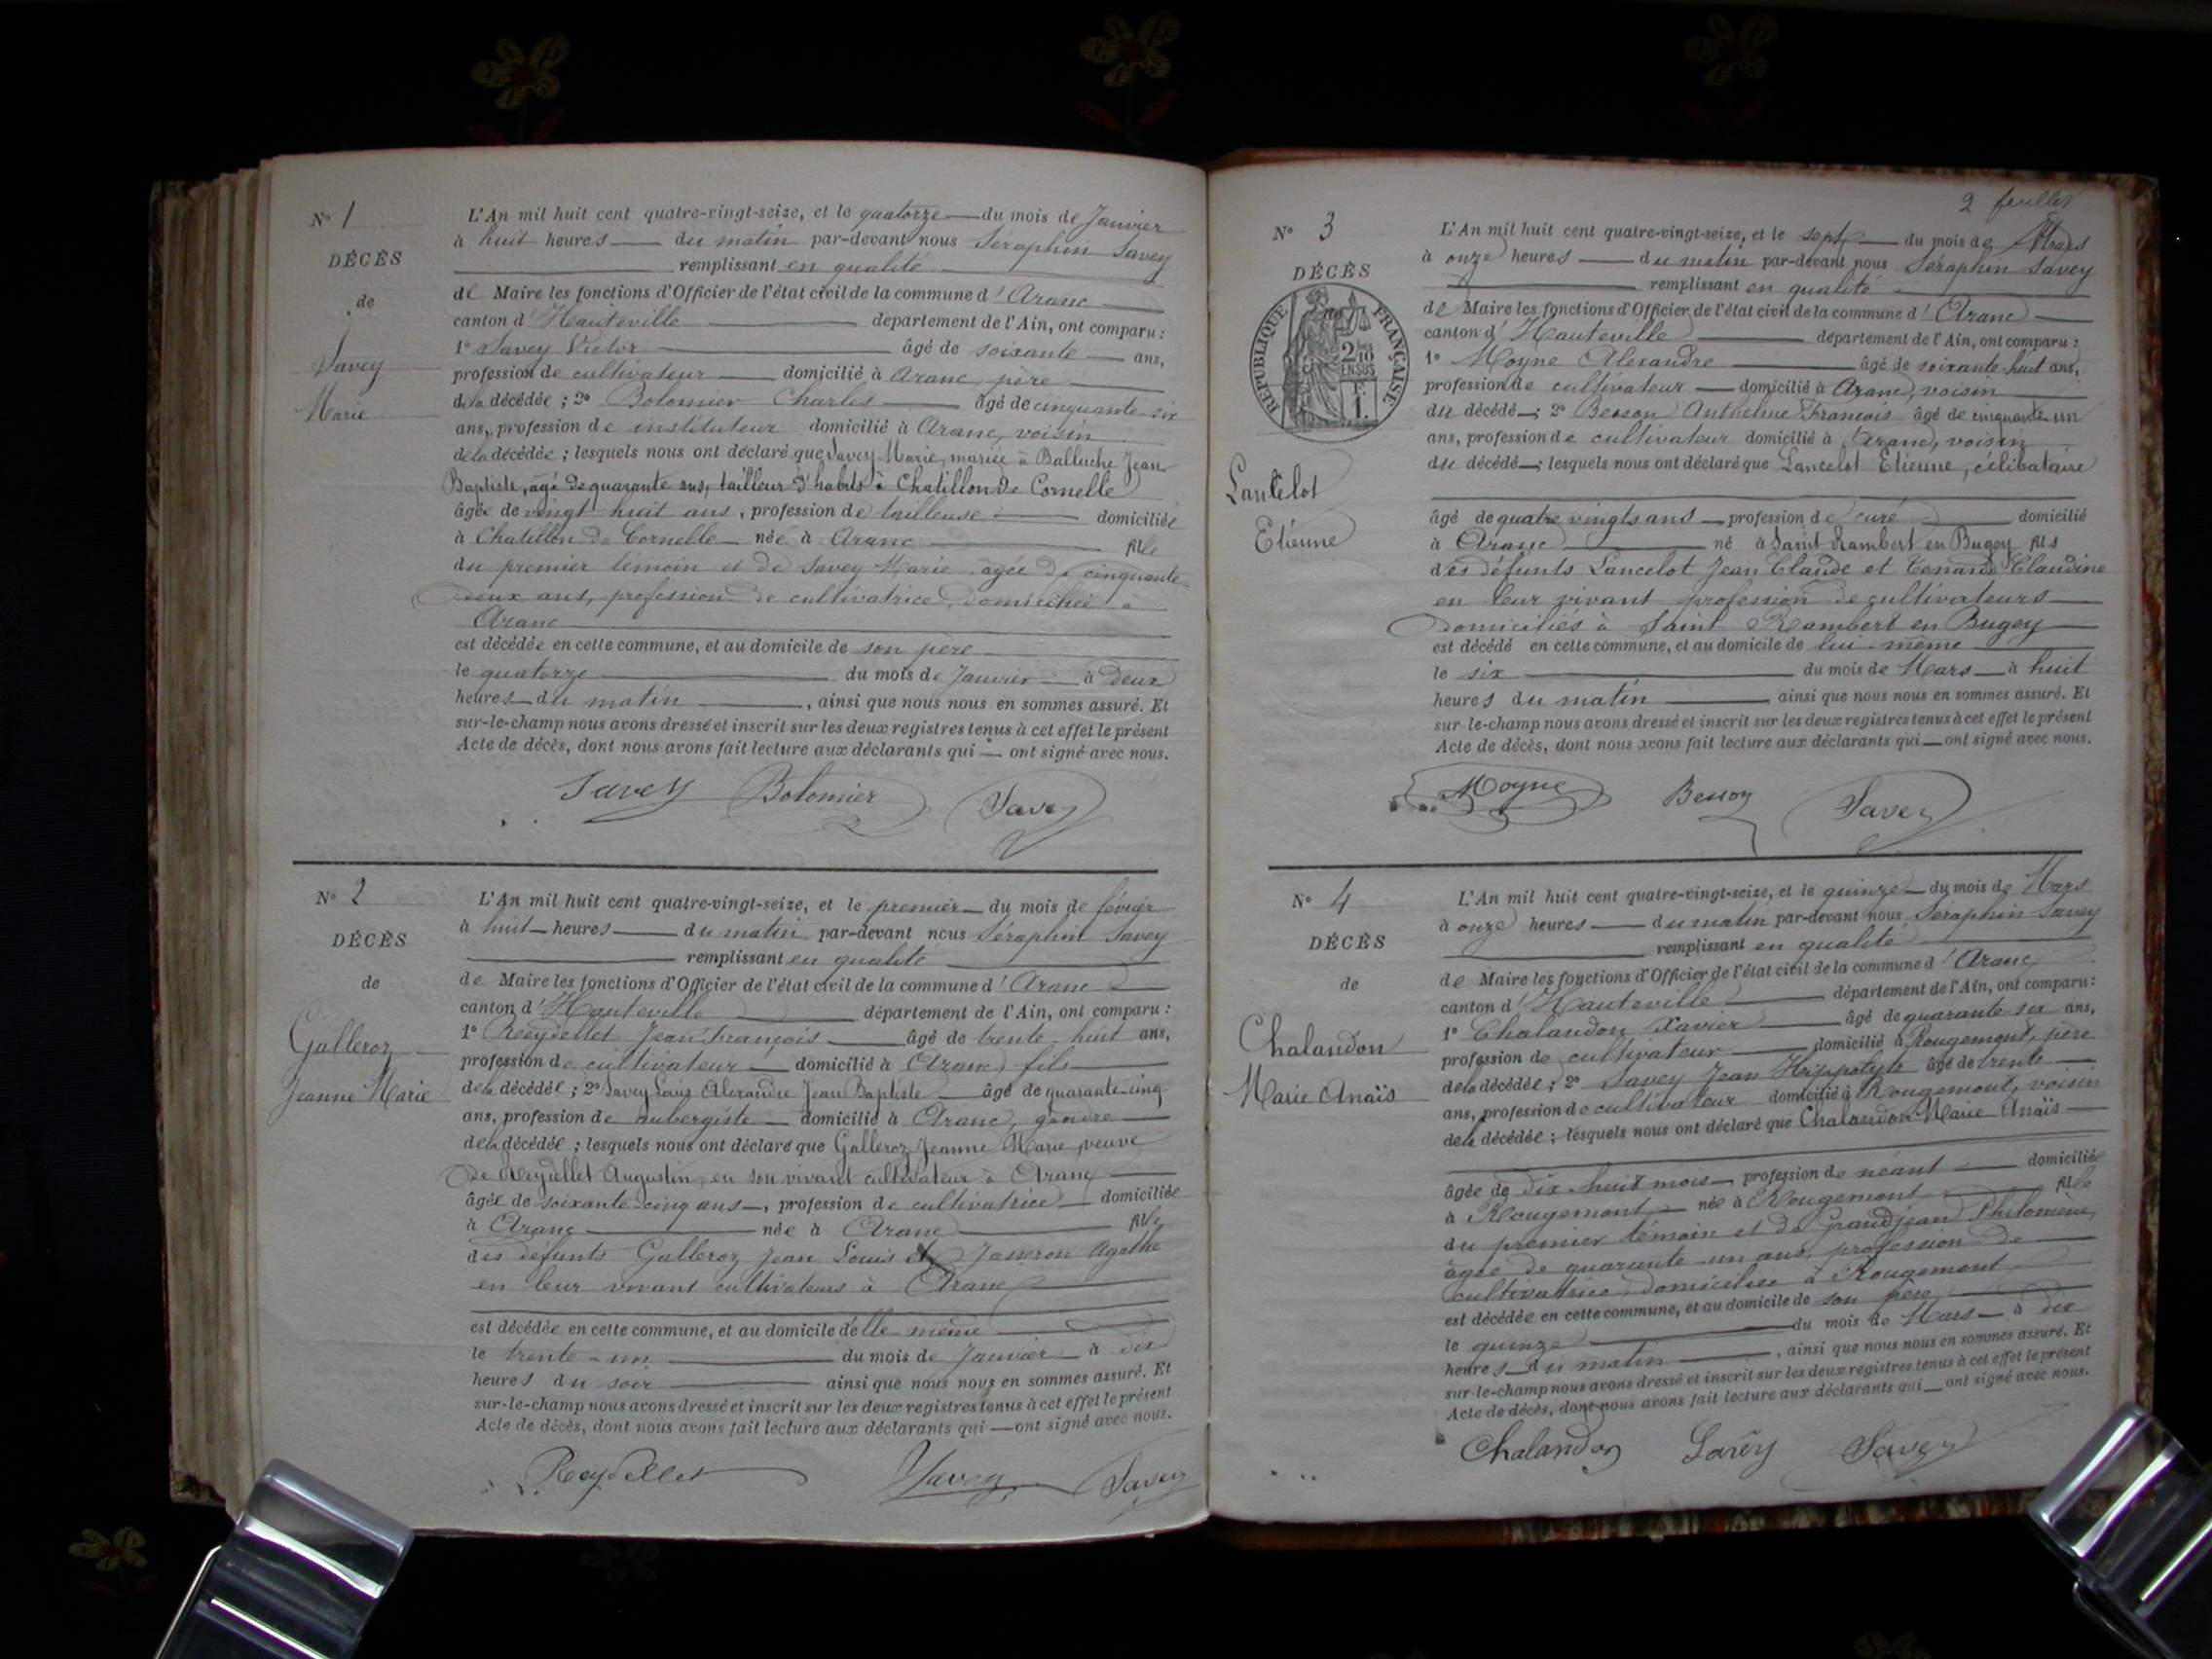 N° 1
DÉCÈS
de
Savey
Marie
L'An mil huit cent quatre-vingt-seize, et le quatorze du mois de Janvier
à huit heures du matin par-devant nous Séraphin Savey
remplissant en qualité
de Maire les fonctions d'Officier de l'état civil de la commune d'Aranc
canton d'Hauteville département de l'Ain, ont comparu :
1° Savey Victor âgé de soixante ans,
profession de cultivateur domicilié à Aranc, père
de la décédée ; 2° Bolomier Charles âgé de cinquante-six
ans, profession de instituteur domicilié à Aranc, voisin
de la décédée ; lesquels nous ont déclaré que Savey Marie, mariée à Balluche Jean
Baptiste, âgé de quarante ans, tailleur d'habits à Chatillon de Cornelle
âgée de vingt huit ans, profession de tailleuse domiciliée
à Chatillon de Cornelle née à Aranc fille
du premier témoin et de Savey Marie, âgée de cinquante
deux ans, profession de cultivatrice, domiciliée à
Aranc
est décédée en cette commune, et au domicile de son père
le quatorze du mois de Janvier à deux
heures du matin, ainsi que nous nous en sommes assuré. Et
sur-le-champ nous avons dressé et inscrit sur les deux registres tenus à cet effet le présent
Acte de décès, dont nous avons fait lecture aux déclarants qui ont signé avec nous.
Savey Bolomier Savey
N° 2
DÉCÈS
de
Galleroz
Jeanne Marie
L'An mil huit cent quatre-vingt-seize, et le premier du mois de février
à huit heures du matin par-devant nous Séraphin Savey
remplissant en qualité
de Maire les fonctions d'Officier de l'état civil de la commune d'Aranc
canton d'Hauteville département de l'Ain, ont comparu :
1° Reydellet Jean François âgé de trente-huit ans,
profession de cultivateur domicilié à Aranc, fils
de la décédée ; 2° Savey Louis Alexandre Jean Baptiste âgé de quarante-cinq
ans, profession de aubergiste domicilié à Aranc, gendre
de la décédée ; lesquels nous ont déclaré que Galleroz Jeanne Marie veuve
de Reydellet Augustin, en son vivant cultivateur à Aranc
âgée de soixante-cinq ans, profession de cultivatrice domiciliée
à Aranc née à Aranc fille
des défunts Galleroz Jean Louis et Janeron Agathe
en leur vivant cultivateurs à Aranc
est décédée en cette commune, et au domicile d'elle même
le trente-un du mois de Janvier à dix
heures du soir ainsi que nous nous en sommes assuré. Et
sur-le-champ nous avons dressé et inscrit sur les deux registres tenus à cet effet le présent
Acte de décès, dont nous avons fait lecture aux déclarants qui ont signé avec nous.
Reydellet Savey Savey
2 feuillet
N° 3
DÉCÈS
RÉPUBLIQUE FRANÇAISE
2/10 EN SUS
F. 1.
Lancelot
Etienne
L'An mil huit cent quatre-vingt-seize, et le sept du mois de Mars
à onze heures du matin par-devant nous Séraphin Savey
remplissant en qualité
de Maire les fonctions d'Officier de l'état civil de la commune d'Aranc
canton d'Hauteville département de l'Ain, ont comparu :
1° Moyne Alexandre âgé de soixante-huit ans,
profession de cultivateur domicilié à Aranc, voisin
du décédé ; 2° Besson Anthelme François âgé de cinquante un
ans, profession de cultivateur domicilié à Aranc, voisin
du décédé ; lesquels nous ont déclaré que Lancelot Etienne, célibataire
âgé de quatre vingts ans profession de curé domicilié
à Aranc né à Saint Rambert en Bugey fils
des défunts Lancelot Jean Claude et Tenand Claudine
en leur vivant profession de cultivateurs
domiciliés à Saint Rambert en Bugey
est décédé en cette commune, et au domicile de lui-même
le six du mois de Mars à huit
heures du matin ainsi que nous nous en sommes assuré. Et
sur-le-champ nous avons dressé et inscrit sur les deux registres tenus à cet effet le présent
Acte de décès, dont nous avons fait lecture aux déclarants qui ont signé avec nous.
Moyne Besson Savey
N° 4
DÉCÈS
de
Chalandon
Marie Anaïs
L'An mil huit cent quatre-vingt-seize, et le quinze du mois de Mars
à onze heures du matin par-devant nous Séraphin Savey
remplissant en qualité
de Maire les fonctions d'Officier de l'état civil de la commune d'Aranc
canton d'Hauteville département de l'Ain, ont comparu :
1° Chalandon Xavier âgé de quarante six ans,
profession de cultivateur domicilié à Rougemont, père
de la décédée ; 2° Savey Jean Hippolyte âgé de trente
ans, profession de cultivateur domicilié à Rougemont, voisin
de la décédée ; lesquels nous ont déclaré que Chalandon Marie Anaïs
âgée de dix-huit mois profession de néant domiciliée
à Rougemont, née à Rougemont fille
du premier témoin et de Grandjean Philomène,
âgée de quarante un ans, profession de
cultivatrice, domiciliée à Rougemont
est décédée en cette commune, et au domicile de son père
le quinze du mois de Mars à dix
heures du matin, ainsi que nous nous en sommes assuré. Et
sur-le-champ nous avons dressé et inscrit sur les deux registres tenus à cet effet le présent
Acte de décès, dont nous avons fait lecture aux déclarants qui ont signé avec nous.
Chalandon Savey Savey